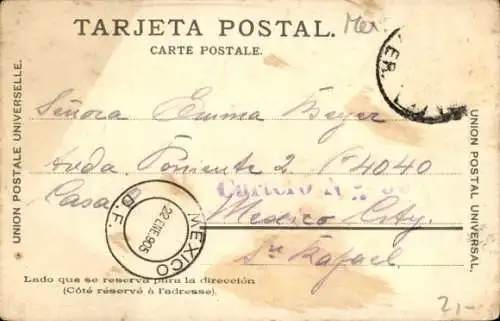 TARJETA POSTAL. Mex
CARTE POSTALE.
UNION POSTALE UNIVERSELLE.
UNION POSTAL UNIVERSAL.
ER.
Señora Emma Beyer
Avda. Poniente 2 4040
Casa Mexico City.
Sn Rafael
MEXICO
22 ENE 905
D.F.
Lado que se reserva para la dirección
(Côté réservé à l'adresse).
21,-